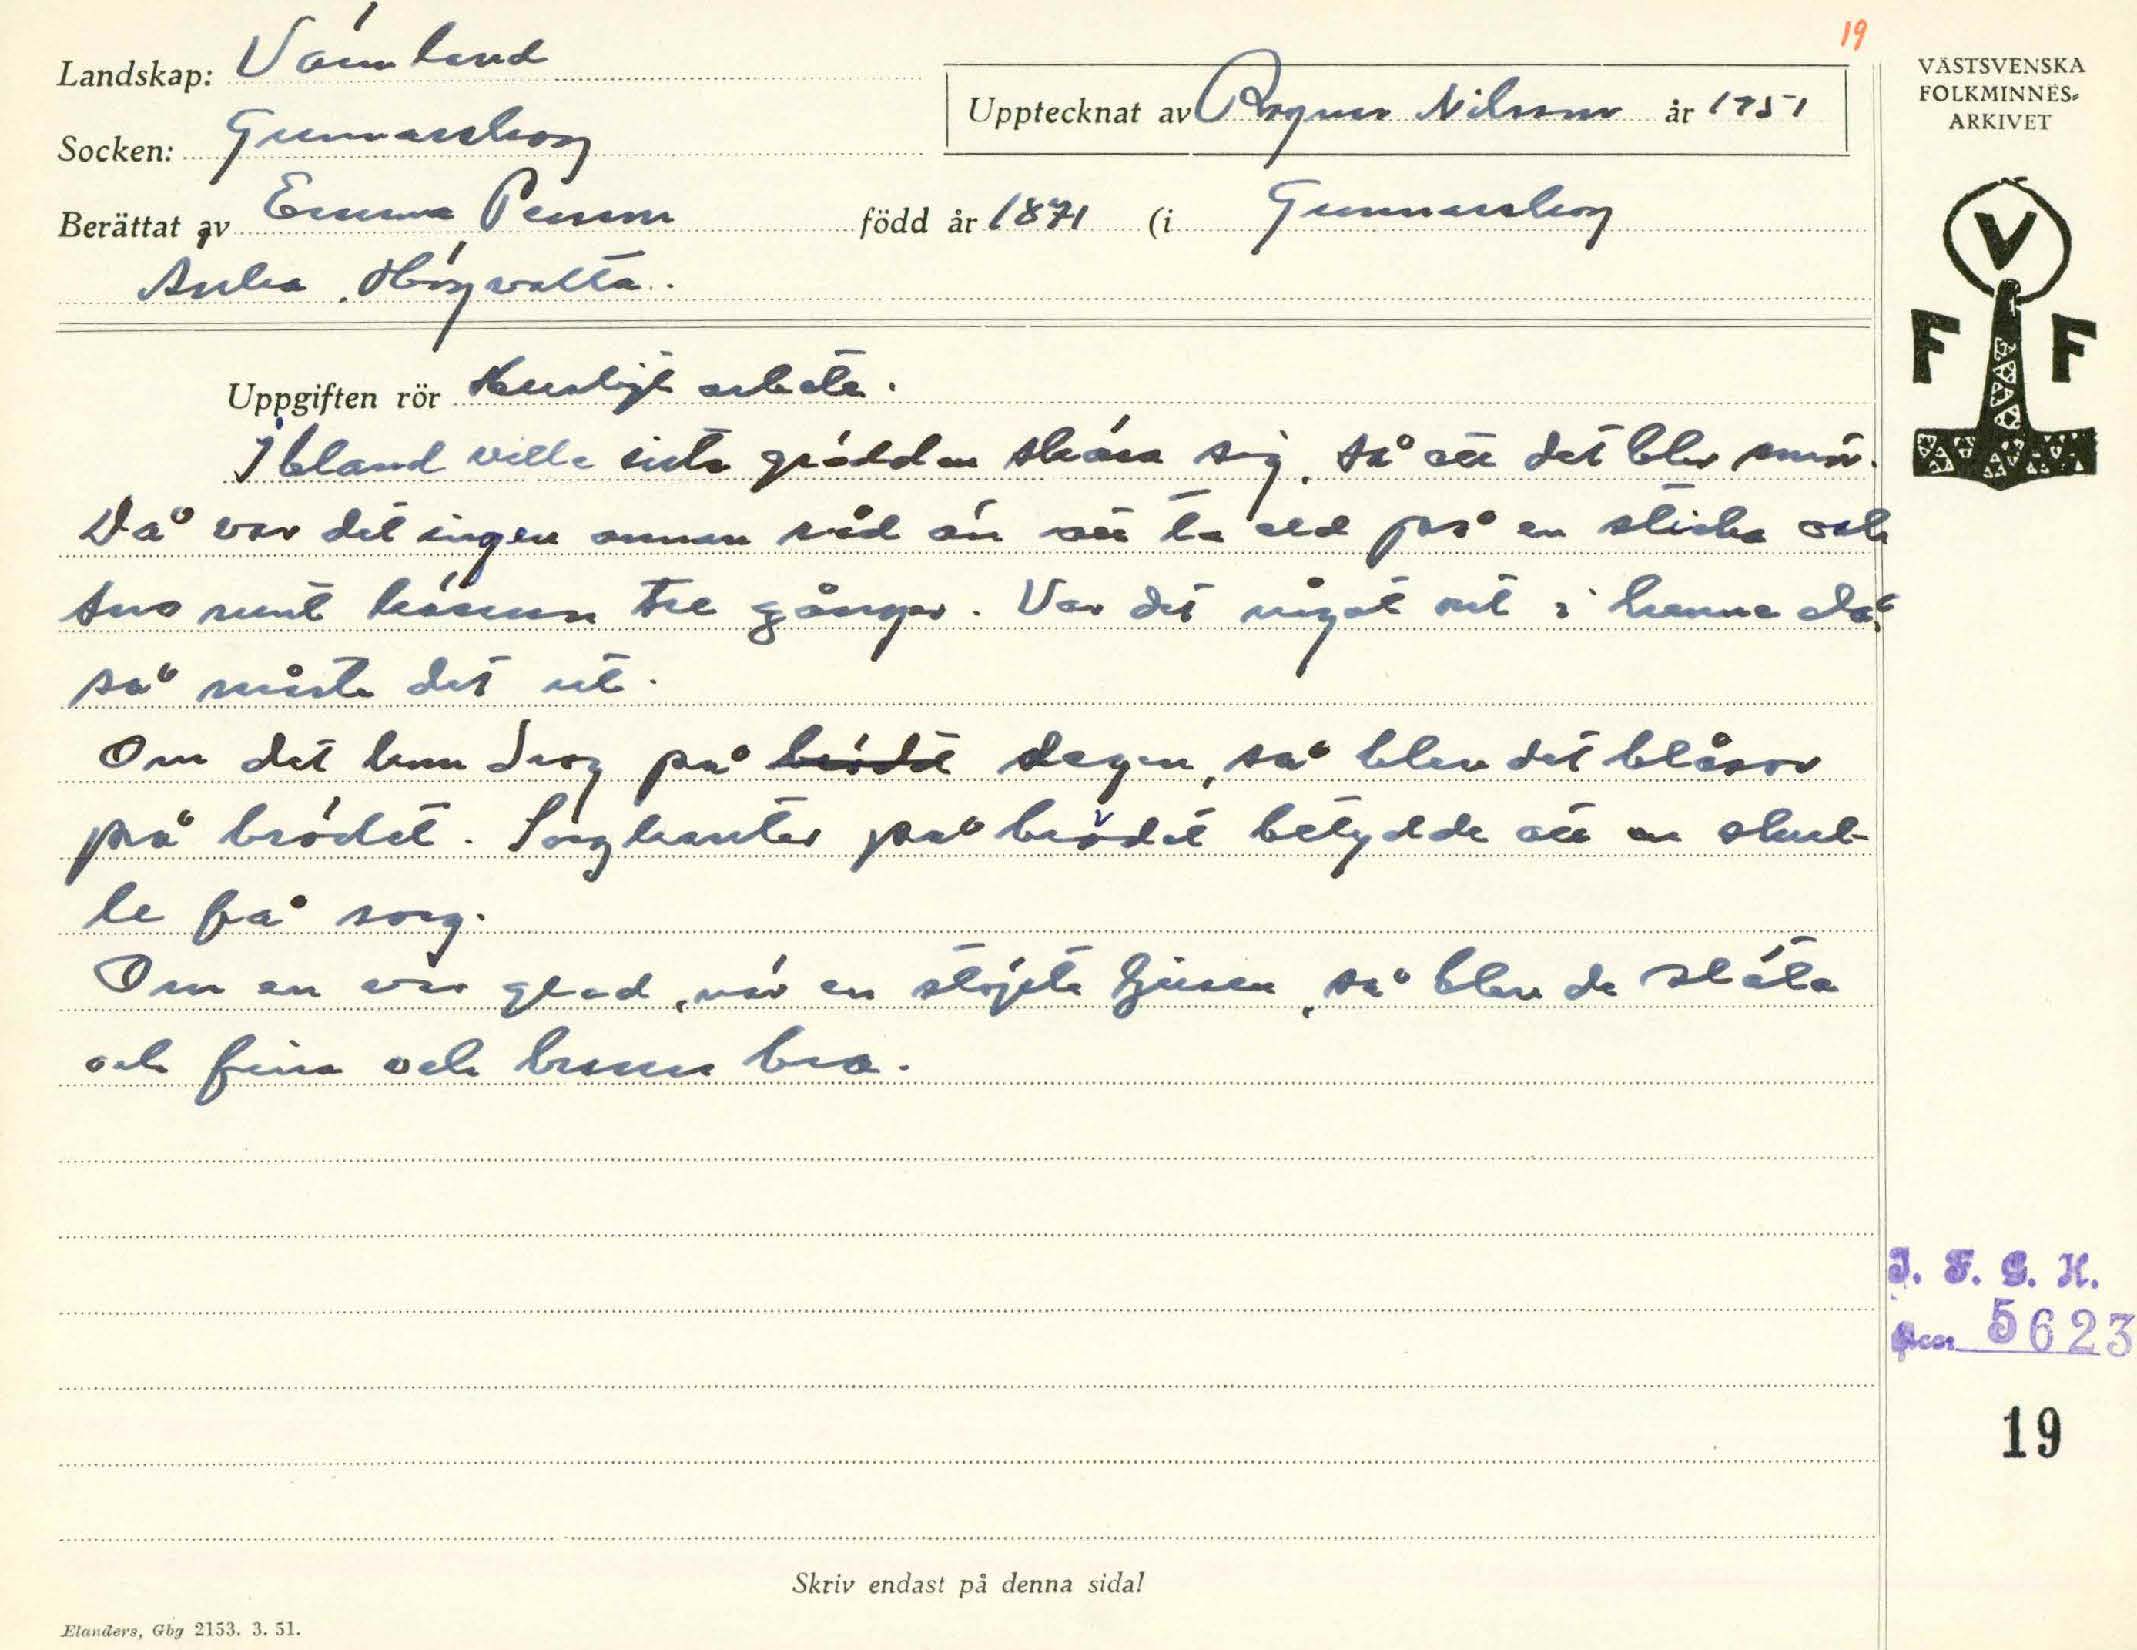 19
Landskap: Värmland
VÄSTSVENSKA
FOLKMINNES-
ARKIVET
Upptecknat av Ragnar Nilsson år 1951
Socken: Gunnarskog
Berättat av Emma Persson född år 1871 (i Gunnarskog
Änka, Högvalta.
V
F F
Uppgiften rör Husligt arbete.
Ibland ville inte grädden skära sig, så att det blev smör.
Då var det ingen annan råd än att ta eld på en sticka och
sno runt kärnan tre gånger. Var det något ont i henne då,
så måste det ut.
Om det kom drog på brödet degen, så blev det blåsor
på brödet. Sorgkanter på brödet betydde att en skul-
le få sorg.
Om en var glad, när en stöpte ljusen, så blev de släta
och fina och brann bra.
I. F. G. H.
Acc. 5623
19
Skriv endast på denna sida!
Elanders, Gbg 2153. 3. 51.